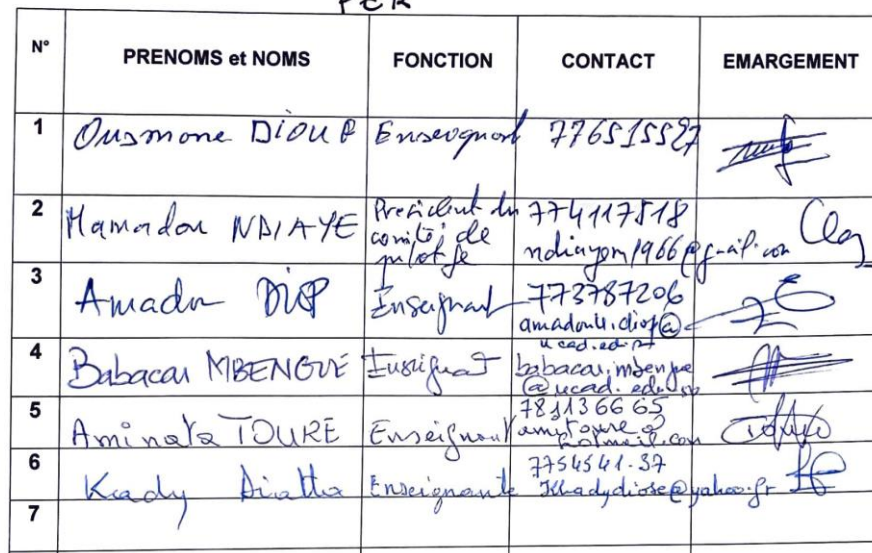 PER
N° PRENOMS et NOMS FONCTION CONTACT EMARGEMENT
1 Ousmone DIOUP Enseignant 776515527
2 Mamadou NDIAYE Président du comité de pilotage 774117518
ndiayom1966@gmail.com
3 Amadou DIOP Enseignant 773787206
amadoull.diop@
ucad.edu.sn
4 Babacar MBENGUE Enseignant babacar.mbengue
@ucad.edu.sn
5 Aminata TOURE Enseignant 781136665
amitoure@
hotmail.com
6 Kady Diatta Enseignante 7754541.37
Khadydiose@yahoo.fr
7